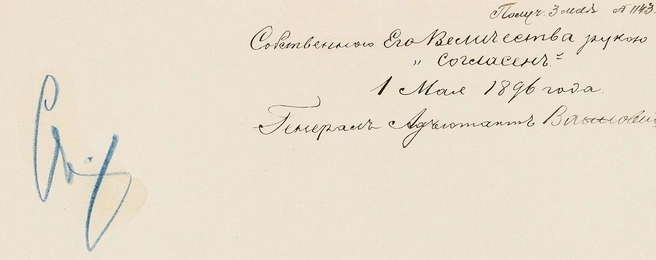 Получ. 3 мая № 1143.
Собственною Его Величества рукою
„Согласенъ."
1 Мая 1896 года.
Генералъ Адъютантъ